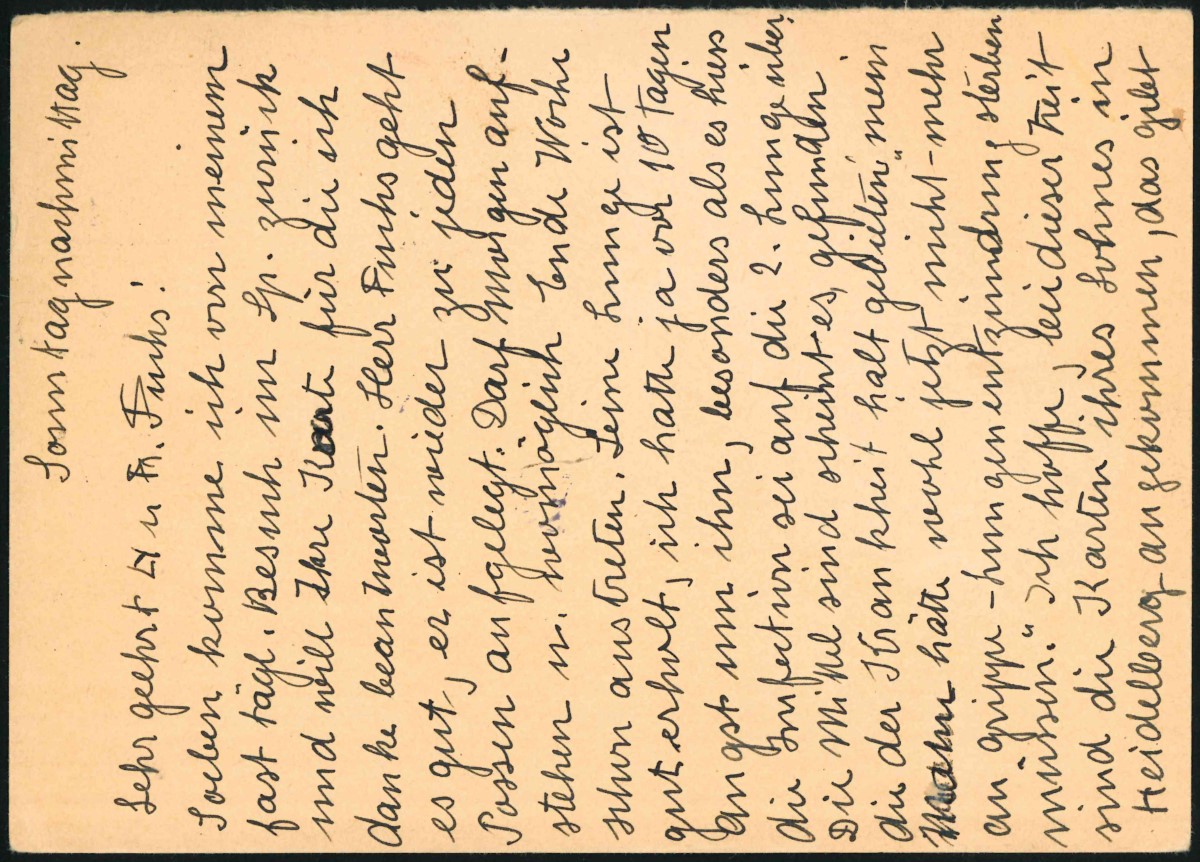 Sonntagnachmittag.
Sehr geehrt u Fr. Fuchs!
Soeben komme ich von meinem
fast tägl. Besuch im Sp. zurück
und will Ihre Karte für die ich
danke beantworten. Herr Fuchs geht
es gut, er ist wieder zu jeden
Possen aufgelegt. Darf morgen auf-
stehen u. womöglich Ende Woche
schon austreten. Seine Lunge ist
gut erholt, ich hatte ja vor 10 Tagen
angst um ihn, besonders als es hiess
die Infection sei auf die 2. Lunge über.
Die Mittel sind scheint es, gefunden
die der Krankheit halt gebieten "mein
Mann hätte wohl jetzt nicht mehr
an grippe-Lungenentzündung sterben
müssen." Ich hoffe, bei dieser Zeit
sind die Karten ihres Sohnes in
Heidelberg angekommen, das gibt